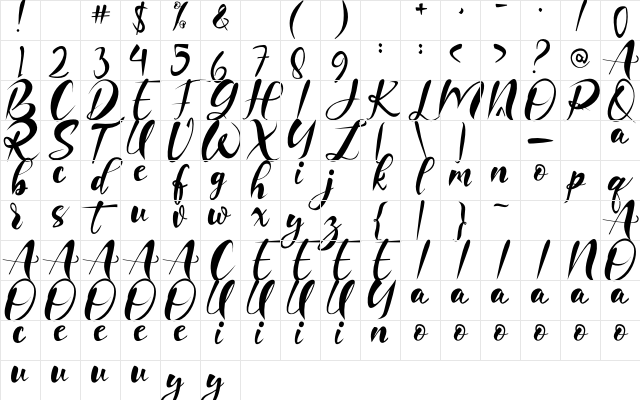 ! # $ % & ( ) + , - . / 0
1 2 3 4 5 6 7 8 9 : : < > ? @ A
B C D E F G H I J K L M N O P Q
R S T U V W X Y Z [ \ ] _ a
b c d e f g h i j k l m n o p q
r s t u v w x y z { | } ~ A
A A A A A C E E E E I I I I N O
O O O O O U U U U Y a a a a a a
c e e e e i i i i n o o o o o o
u u u u y y